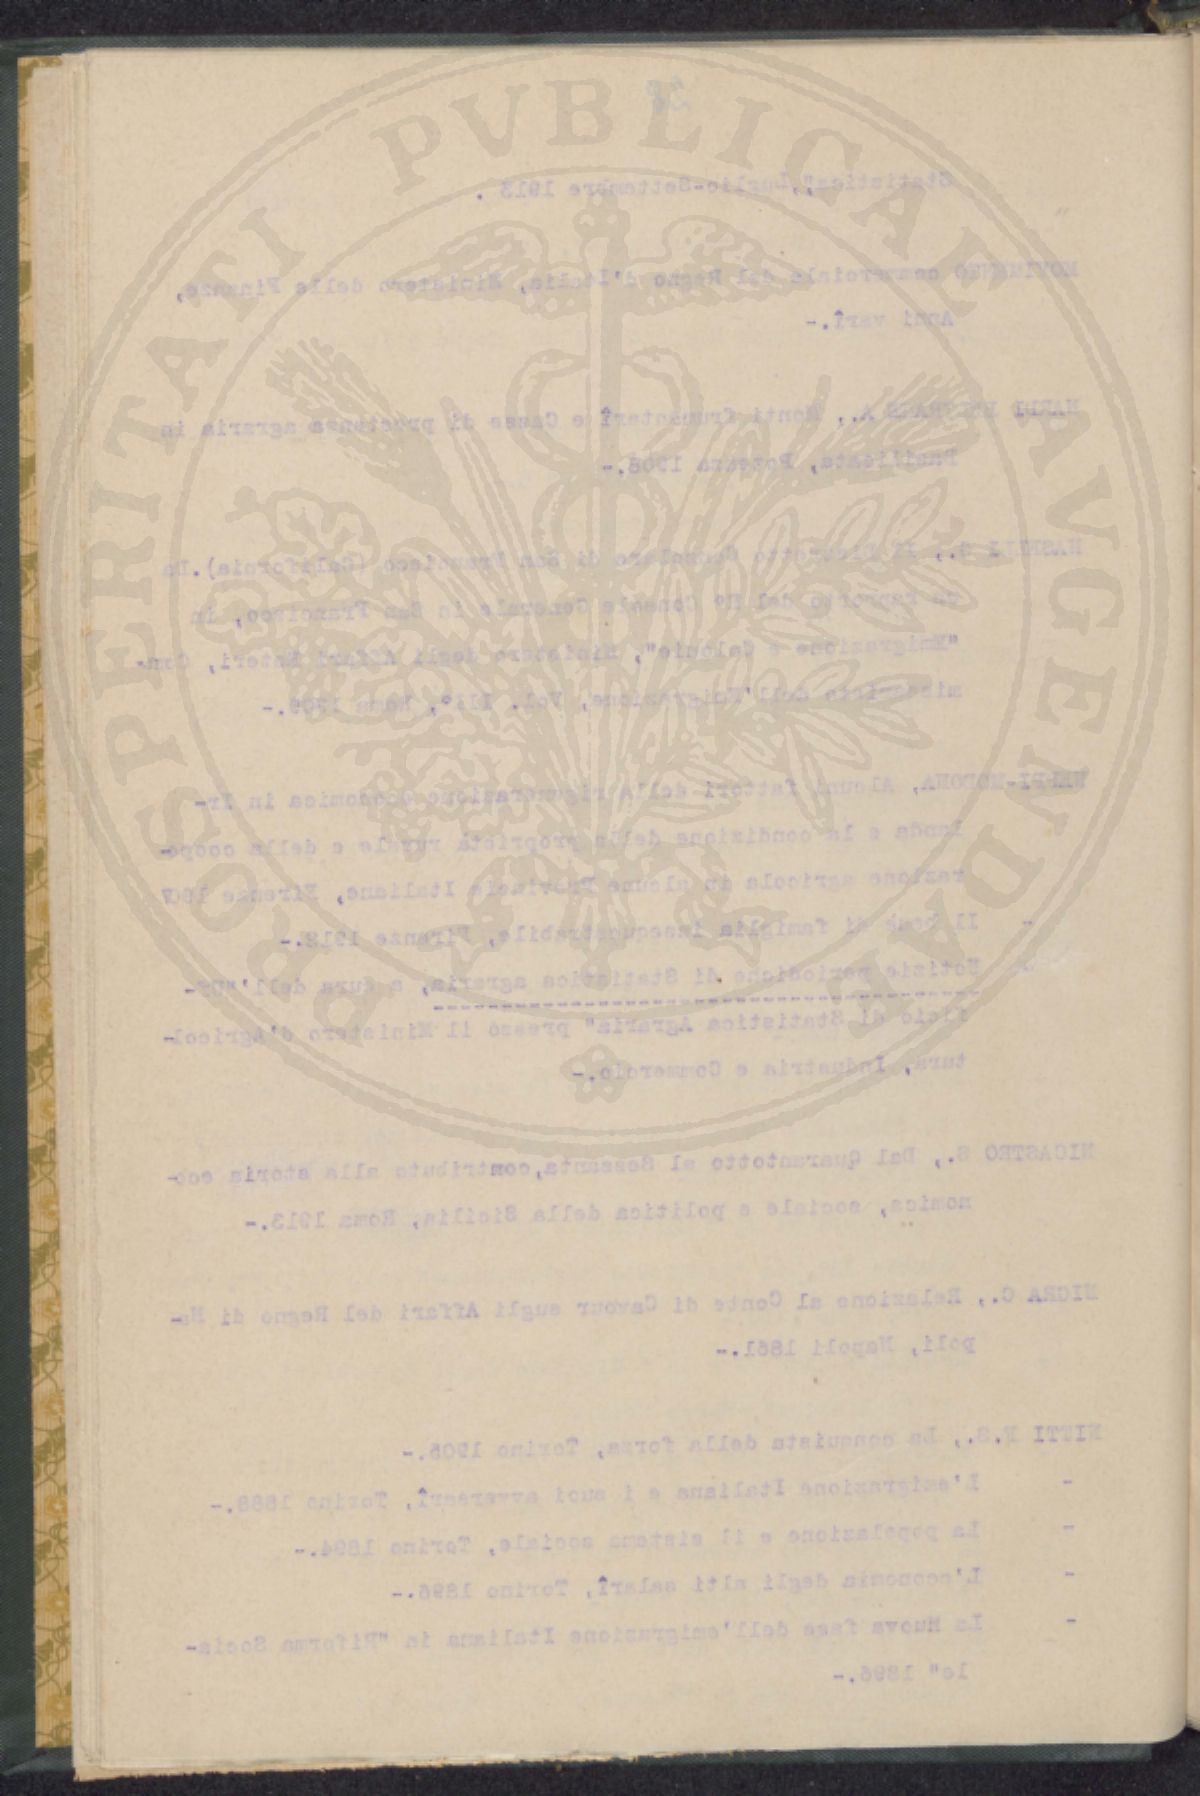 PROSPERITATI PVBLICAE AVGENDAE
Statistica", Luglio-Settembre 1913 .
MOVIMENTO commerciale del Regno d'Italia, Ministero delle Finanze,
Anni varî.-
NARDI A., Monti frumentarî e Casse di prestanza agraria in
Basilicata, Potenza 1908.-
NASELLI G., Il Distretto Consolare di San Francisco (California). Da
un rapporto del Rº Console Generale in San Francisco, in
"Emigrazione e Colonie", Ministero degli Affari Esteri, Com-
missariato dell'Emigrazione, Vol. IIIº, Roma 1909.-
NEPPI-MODONA, Alcuni fattori della rigenerazione economica in Ir-
landa e la condizione della proprietà rurale e della coope-
razione agricola in alcune Provincie Italiane, Firenze 1907
- Il bene di famiglia insequestrabile, Firenze 1912.-
Notizie periodiche di Statistica agraria, a cura dell'"Uf-
ficio di Statistica Agraria" presso il Ministero d'Agricol-
tura, Industria e Commercio.-
NICASTRO S., Dal Quarantotto al Sessanta, contributo alla storia eco-
nomica, sociale e politica della Sicilia, Roma 1913.-
NIGRA C., Relazione al Conte di Cavour sugli Affari del Regno di Na-
poli, Napoli 1861.-
NITTI F.S., La conquista della forza, Torino 1905.-
- L'emigrazione Italiana e i suoi avversarî, Torino 1888.-
- La popolazione e il sistema sociale, Torino 1894.-
- L'economia degli alti salarî, Torino 1896.-
- La Nuova fase dell'emigrazione Italiana in "Riforma Socia-
le" 1896.-